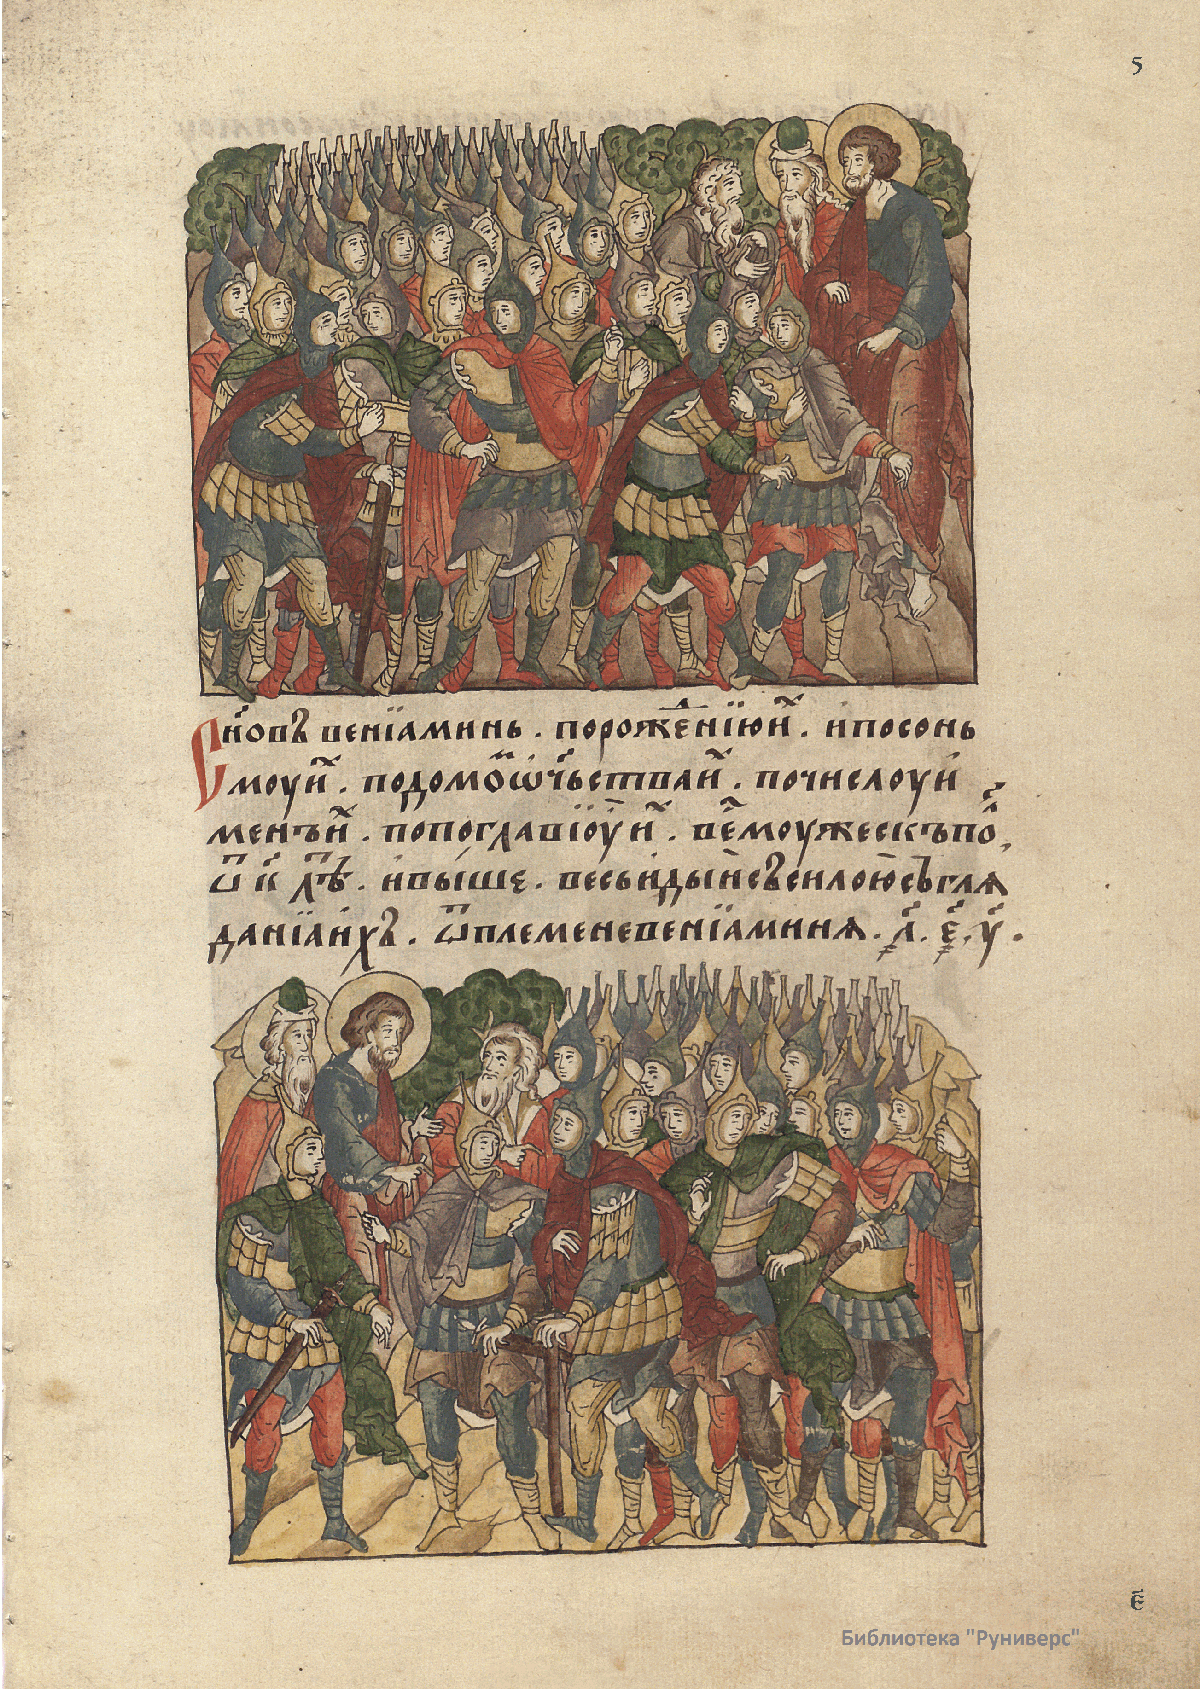 5
Сн҃овъ венїаминь . порожеⷩ҇їюиⷯ . ипосонь
моуиⷯ . подомоⷨѿчⷭ҇ьстваиⷯ . почислоуи
менъиⷯ . попоглавїоу҃иⷯ . веⷭ҇моужескъпоⷧ
ѿ к҃ лѣⷮ . ивыше . весьидыисъсилоюсъгля
данїаихъ . ѿплеменевенїаминя . ҂л҃ . ҂е҃ . у҃ .
е҃
Библиотека "Руниверс"